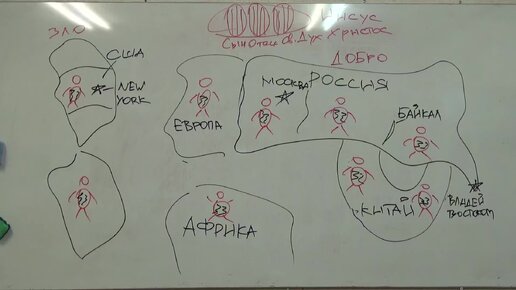 ЗЛО
Иисус
Сын Отец Св. Дух Христос
ДОБРО
США
NEW
YORK
ЕВРОПА
МОСКВА
РОССИЯ
БАЙКАЛ
КИТАЙ
ВЛАДЕЙ
АФРИКА